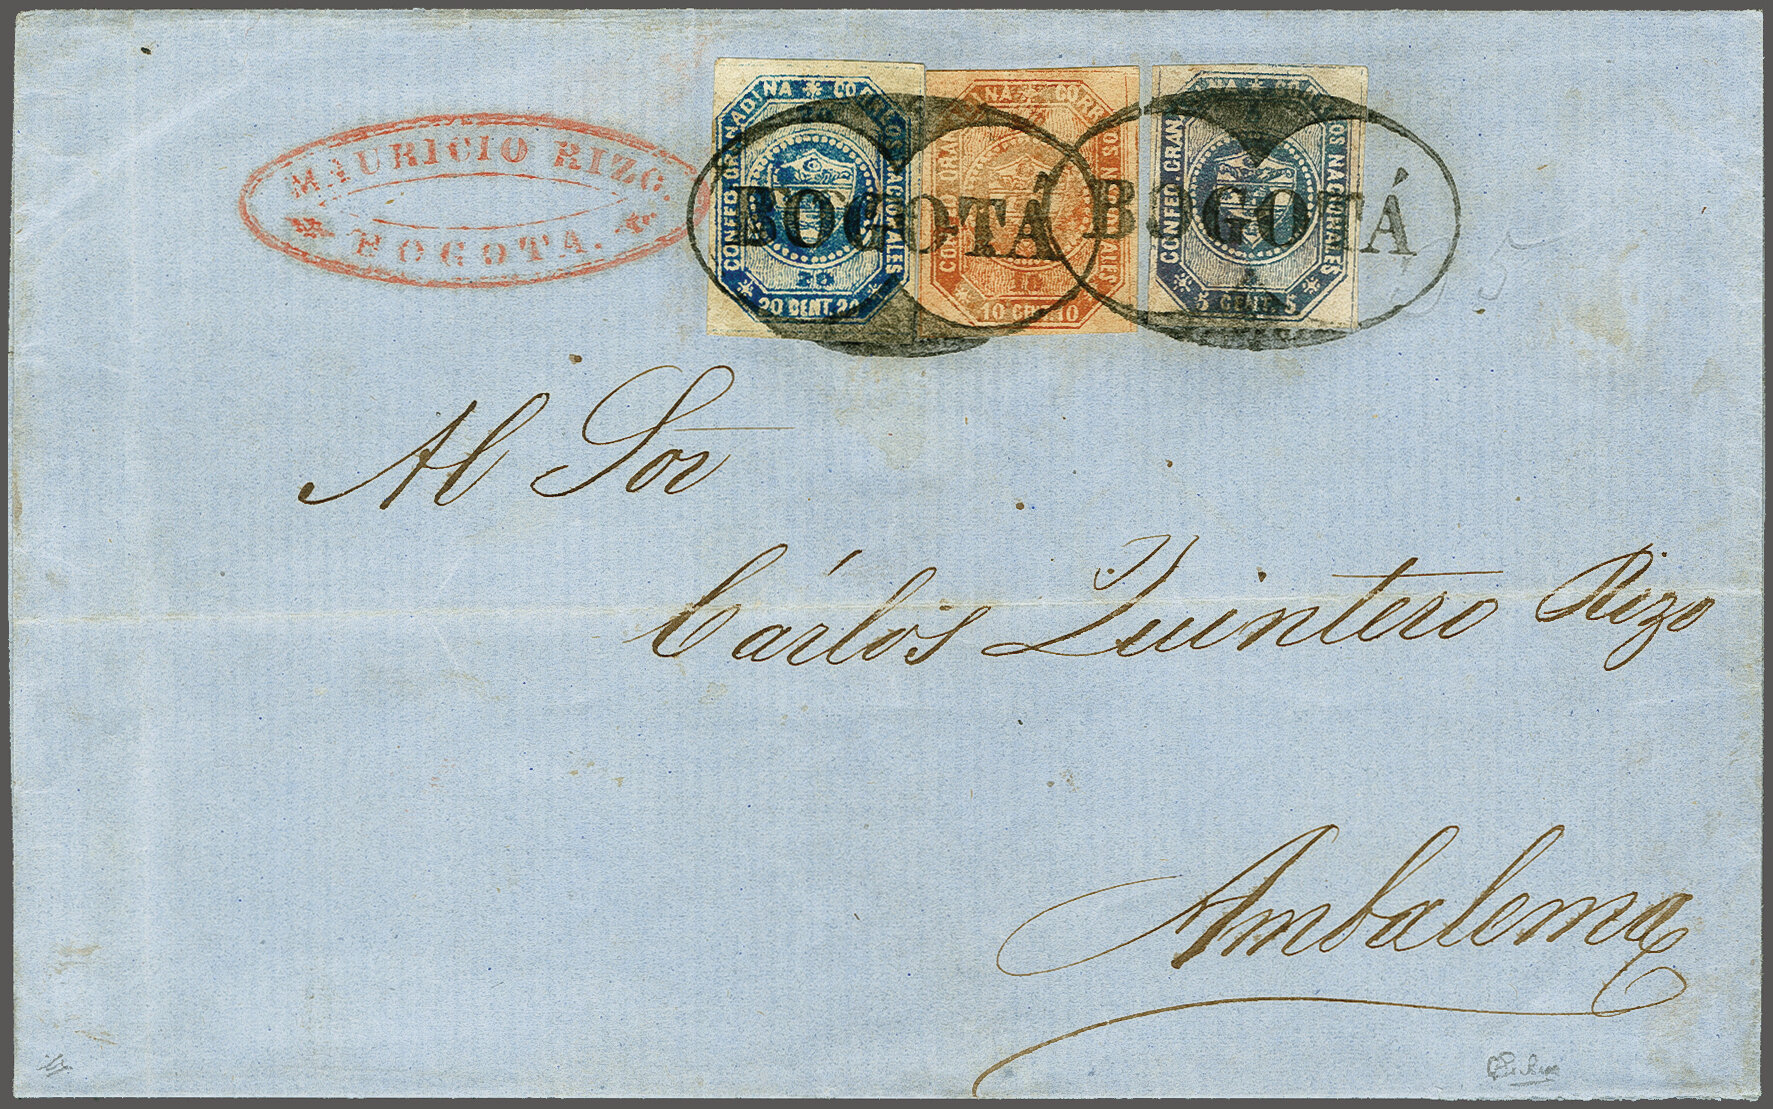 MAURICIO RIZO.
BOGOTA.
CONFED. GRANADINA * CORREOS NACIONALES *
20 CENT. 20
NA * CORREOS NACIONALES
10 CENT. 10
CONFED. GRAN
OS NACIONALES
5 CENT. 5
BOGOTÁ
BOGOTÁ
Al Sor
Cárlos Quintero Rizo
Ambalema